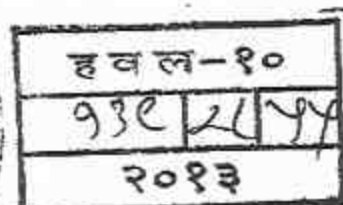 हवल-१०
१३९ २८ ५५
२०१३